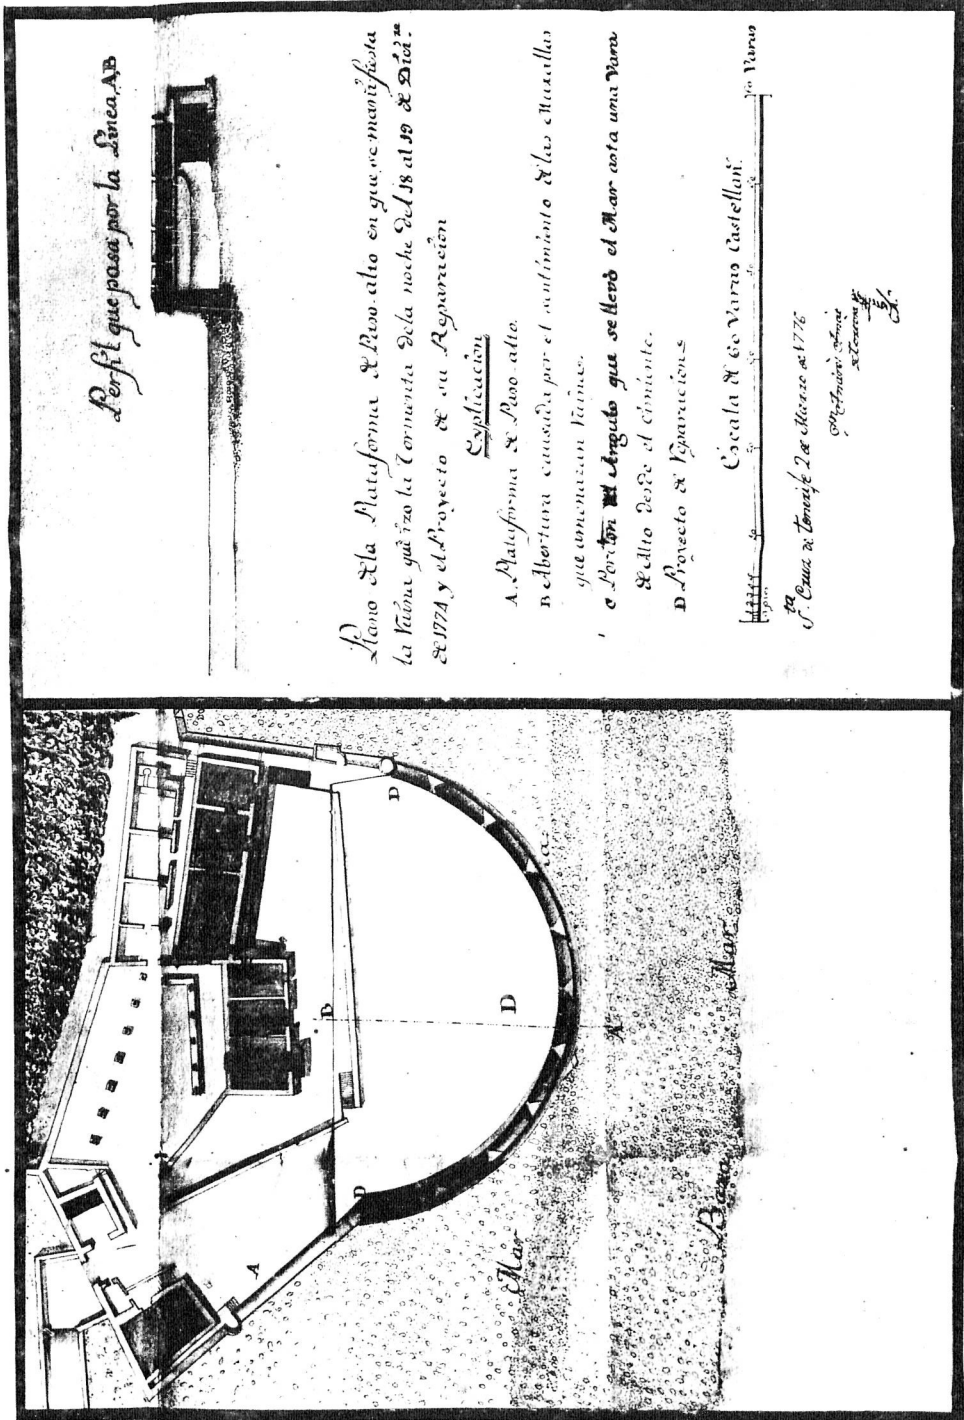 Perfil que pasa por la Linea, AB
Plano de la Plataforma de Paso-alto en que se manifiesta
la Ruina que izo la Tormenta de la noche del 18 al 19 de Dizi.re
de 1774 y el Proyecto de su Reparación
Explicación
A. Plataforma de Paso-alto.
B Abertura causada por el sentimiento de las Murallas
que amenazan Ruinas.
C Porcion del Angulo que se llevó el Mar asta una Vara
de Alto desde el cimiento.
D Proyecto de Reparaciones
Escala de 60 Varas Castellan.
60 Varas
S.ta Cruz de Tenerife 2 de Marzo de 1776
D
B
D
A
D
D
A
Mar
Baxa Mar